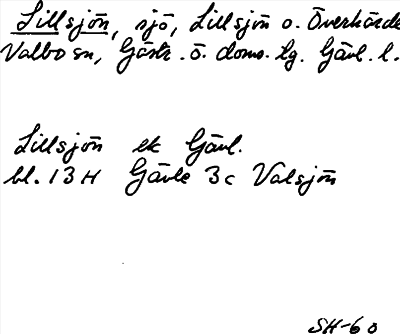 Lillsjön, sjö, Lillsjön o. Överhärde
Valbo sn, Gästr. ö. doms. tg. Gävl. l.
Lillsjön ek Gävl.
bl. 13H Gävle 3c Valsjön
SH-60